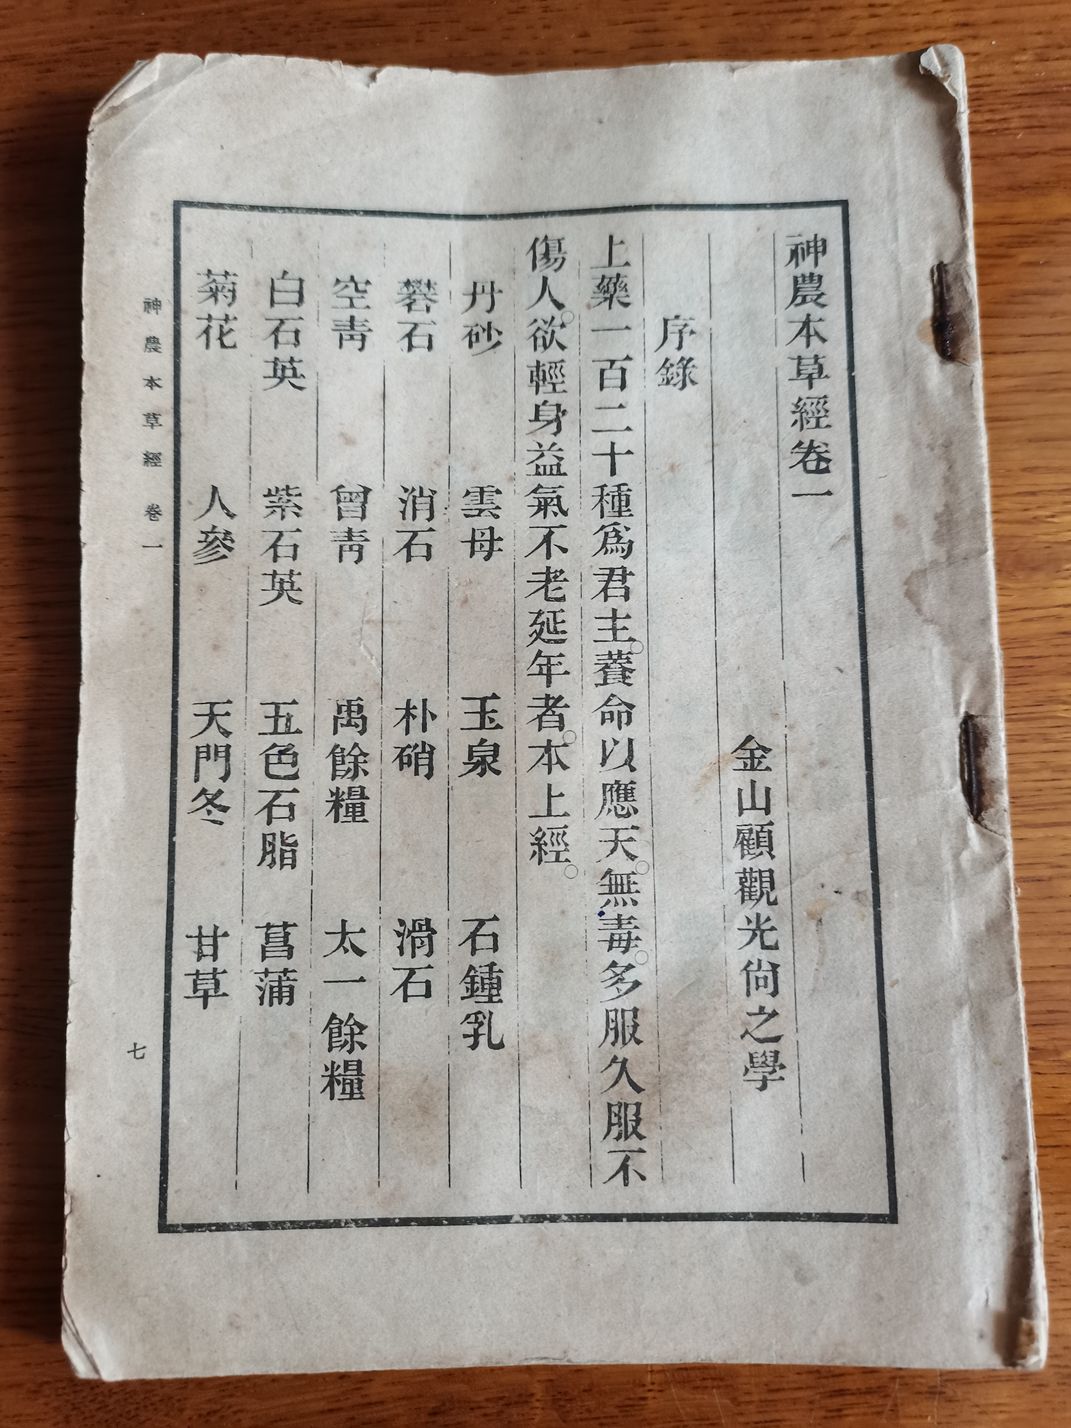 神農本草經卷一
金山顧觀光尙之學
序錄
上藥一百二十種爲君主。養命以應天。無毒。多服久服不
傷人。欲輕身益氣不老延年者。本上經。
丹砂 雲母 玉泉 石鍾乳
礬石 消石 朴硝 滑石
空靑 曾靑 禹餘糧 太一餘糧
白石英 紫石英 五色石脂 菖蒲
菊花 人參 天門冬 甘草
神農本草經 卷一
七